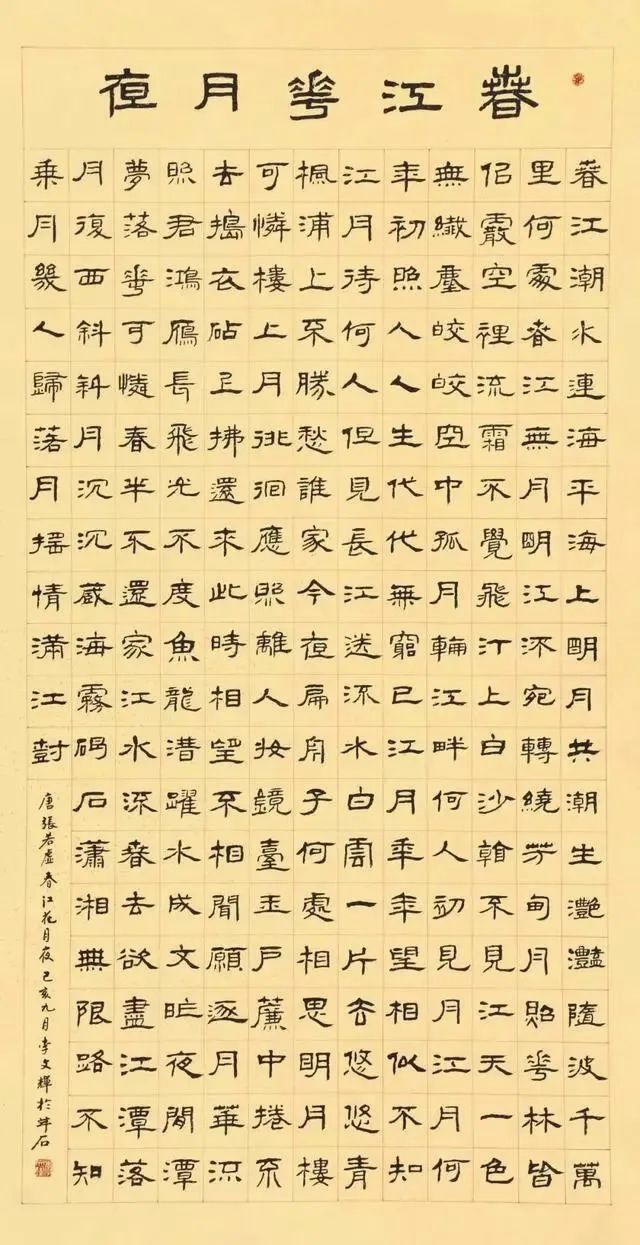 春江花月夜
春江潮水連海平海上明月共潮生灧灧隨波千萬
里何處春江無月明江流宛轉繞芳甸月照花林皆
似霰空裡流霜不覺飛汀上白沙看不見江天一色
無纖塵皎皎空中孤月輪江畔何人初見月江月何
年初照人人生代代無窮已江月年年望相似不知
江月待何人但見長江送流水白雲一片去悠悠青
楓浦上不勝愁誰家今夜扁舟子何處相思明月樓
可憐樓上月徘徊應照離人妝鏡臺玉戶簾中捲不
去搗衣砧上拂還來此時相望不相聞願逐月華流
照君鴻雁長飛光不度魚龍潛躍水成文昨夜閒潭
夢落花可憐春半不還家江水流春去欲盡江潭落
月復西斜斜月沉沉藏海霧碣石瀟湘無限路不知
乘月幾人歸落月搖情滿江尌
唐張若虛春江花月夜己亥九月李文輝於